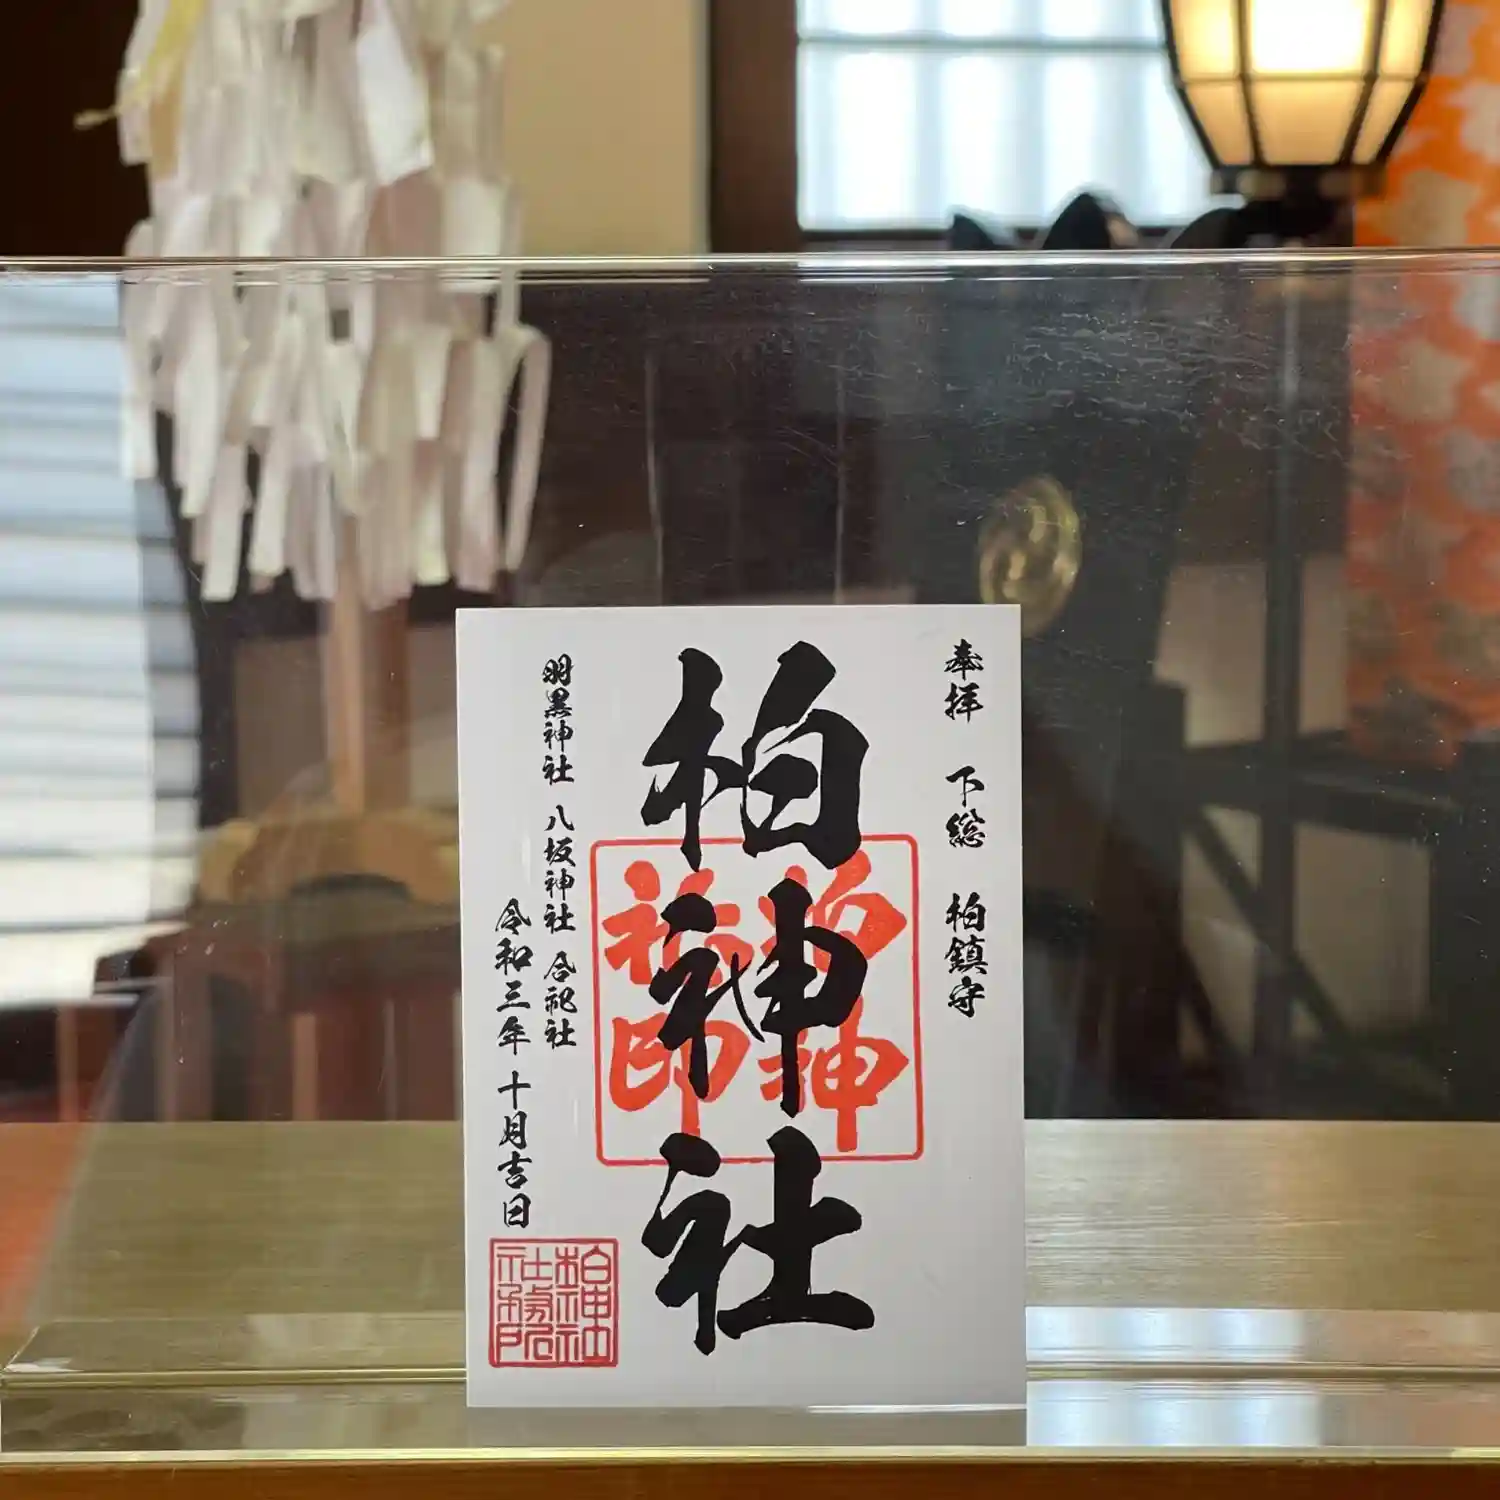 奉拝 下総 柏鎮守
柏神社
羽黒神社 八坂神社 合祀社
令和三年 十月吉日
柏神社印
柏神社社務所印